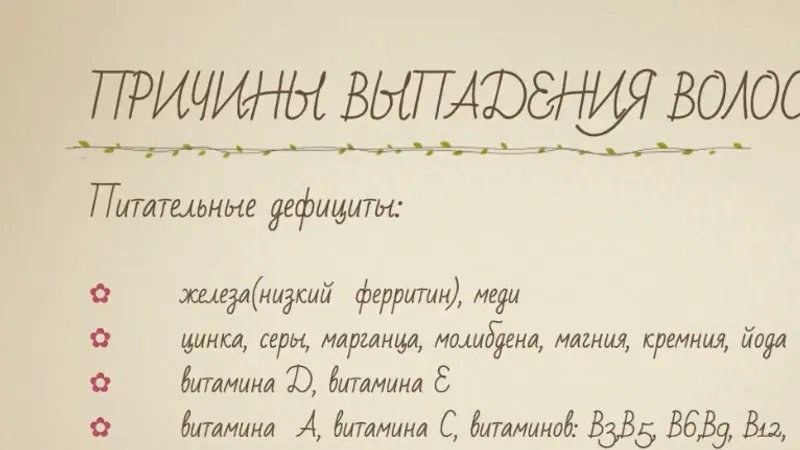 ПРИЧИНЫ ВЫПАДЕНИЯ ВОЛОС
Питательные дефициты:
железа(низкий ферритин), меди
цинка, серы, марганца, молибдена, магния, кремния, йода
витамина D, витамина Е
витамина А, витамина С, витаминов: В3,В5, В6,В9, В12,